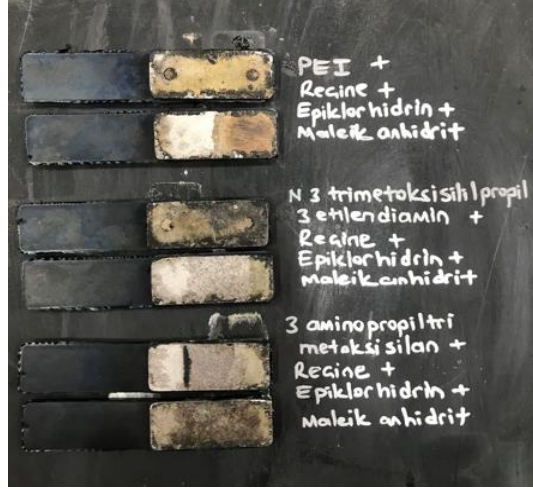 PEI +
Regine +
Epiklorhidrin +
Maleik anhidrit
N 3 trimetoksisihlpropil
3 etilendiamin +
Regine +
Epiklorhidrin +
Maleik anhidrit
3 aminopropiltri
metoksisilan +
Regine +
Epiklorhidrin +
Maleik anhidrit